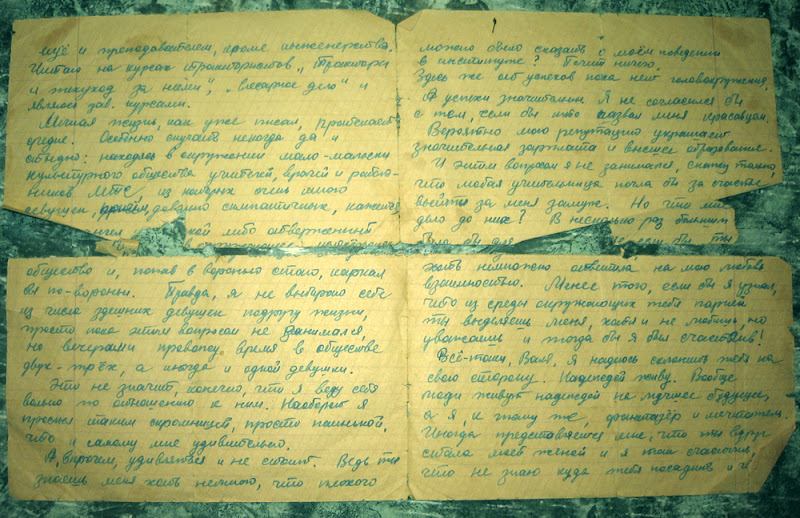 ещё и преподавателем, кроме инженерства.
Читаю на курсах трактористов „Тракторы
и уход за ними“, „Слесарное дело“ и
являюсь зав. курсами.
Личная жизнь, как уже писал, протекает
Особенно скучать некогда да и
стыдно: нахожусь в окружении мало-мальски
культурного общества учителей, врачей и работ-
ников МТС, из которых очень много
девушек, довольно симпатичных, кажется
либо отверженный
общество и, попав в воронью стаю, каркал
бы по-вороньи. Правда, я не выбираю себе
из числа здешних девушек подругу жизни,
просто пока этим вопросом не занимался,
но вечерами провожу время в обществе
двух-трёх, а иногда и одной девушки.
Это не значит, конечно, что я веду себя
вольно по отношению к ним. Наоборот я
прослыл таким скромницей, просто паинькой,
что и самому мне удивительно.
А, впрочем, удивляться и не стоит. Ведь ты
знаешь меня хоть немного, что плохого
можно было сказать о моём поведении
в институте? Почти ничего.
Здесь же от успехов пока нет головокружения.
А успехи значительны. Я не согласился бы
с тем, если бы кто назвал меня красавцем.
Вероятно мою репутацию украшает
значительная зарплата и высшее образование.
И этим вопросом я не занимался, скажу только,
что любая учительница пошла бы за счастье
выйти за меня замуж. Но что мне
дело до них? В несколько раз большим
было бы для если бы ты
хоть немножко ответила на мою любовь
взаимностью. Менее того, если бы я узнал,
что из среды окружающих тебя парней
ты выделяешь меня, хотя и не любишь, но
уважаешь и тогда бы я был счастлив!
Всё-таки, Валя, я надеюсь склонить тебя на
свою сторону. Надеждой живу. Вообще
люди живут надеждой на лучшее будущее,
а я, к тому же, фантазёр и мечтатель.
Иногда представляется мне, что ты вдруг
стала моей женой и я так счастлив,
что не знаю куда тебя посадить и